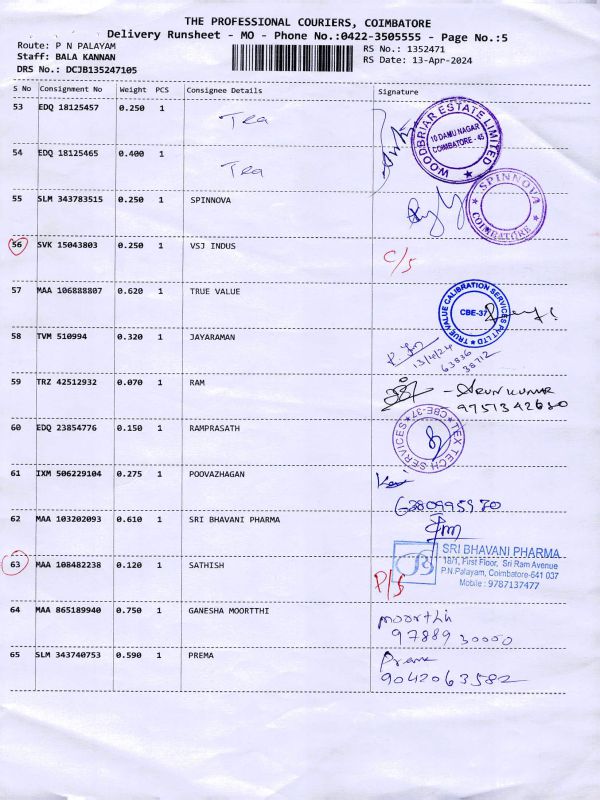 THE PROFESSIONAL COURIERS, COIMBATORE
Delivery Runsheet - MO - Phone No.:0422-3505555 - Page No.:5
Route: P N PALAYAM
RS No.: 1352471
Staff: BALA KANNAN
RS Date: 13-Apr-2024
DRS No.: DCJB135247105
S No Consignment No Weight PCS Consignee Details Signature
53 EDQ 18125457 0.250 1 Tea
WOODBRIAR ESTATE LIMITED
10 DAMU NAGAR
COIMBATORE - 45
54 EDQ 18125465 0.400 1 Tea
55 SLM 343783515 0.250 1 SPINNOVA
SPINNOVA
COIMBATORE
56 SVK 15043803 0.250 1 VSJ INDUS C/S
57 MAA 106888807 0.620 1 TRUE VALUE
TRUE VALUE CALIBRATION SERVICES PVT LTD
CBE-37
58 TVM 510994 0.320 1 JAYARAMAN
13/4/24
63836
38712
59 TRZ 42512932 0.070 1 RAM
- ARUN KUMAR
9751342630
60 EDQ 23854776 0.150 1 RAMPRASATH
TEX TECH SERVICES
CBE-37
61 IXM 506229104 0.275 1 POOVAZHAGAN
6280995970
62 MAA 103202093 0.610 1 SRI BHAVANI PHARMA
SRI BHAVANI PHARMA
18/1, First Floor, Sri Ram Avenue
P.N.Palayam, Coimbatore-641 037
Mobile : 9787137477
63 MAA 108482238 0.120 1 SATHISH P/S
64 MAA 865189940 0.750 1 GANESHA MOORTTHI
moorthi
9788930000
65 SLM 343740753 0.590 1 PREMA
Prema
9042063582